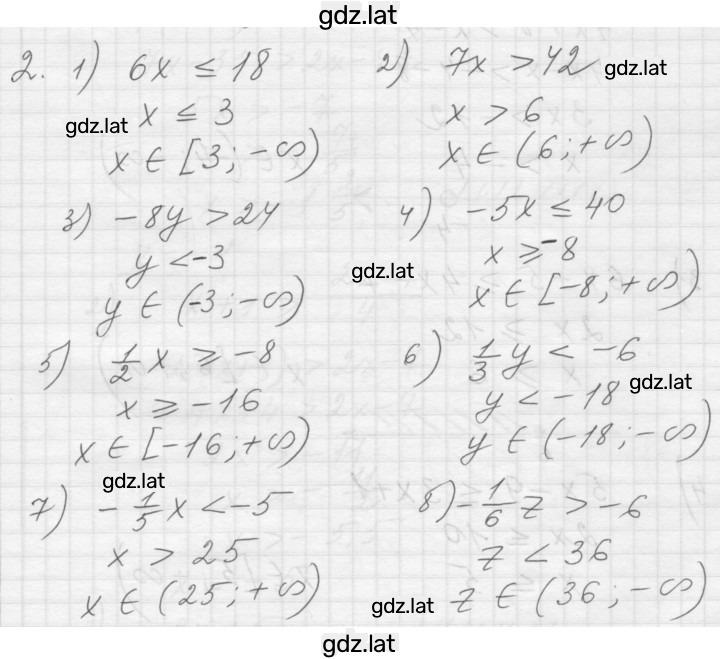 gdz.lat
2. 1) 6x ≤ 18
x ≤ 3
x ∈ [3; -∞)
2) 7x > 42
x > 6
x ∈ (6; +∞)
3) -8y > 24
y < -3
y ∈ (-3; -∞)
4) -5x ≤ 40
x ≥ -8
x ∈ [-8; +∞)
5) 1/2 x ≥ -8
x ≥ -16
x ∈ [-16; +∞)
6) 1/3 y < -6
y < -18
y ∈ (-18; -∞)
7) -1/5 x < -5
x > 25
x ∈ (25; +∞)
8) -1/6 z > -6
z < 36
z ∈ (36; -∞)
gdz.lat
gdz.lat
gdz.lat
gdz.lat
gdz.lat
gdz.lat
gdz.lat